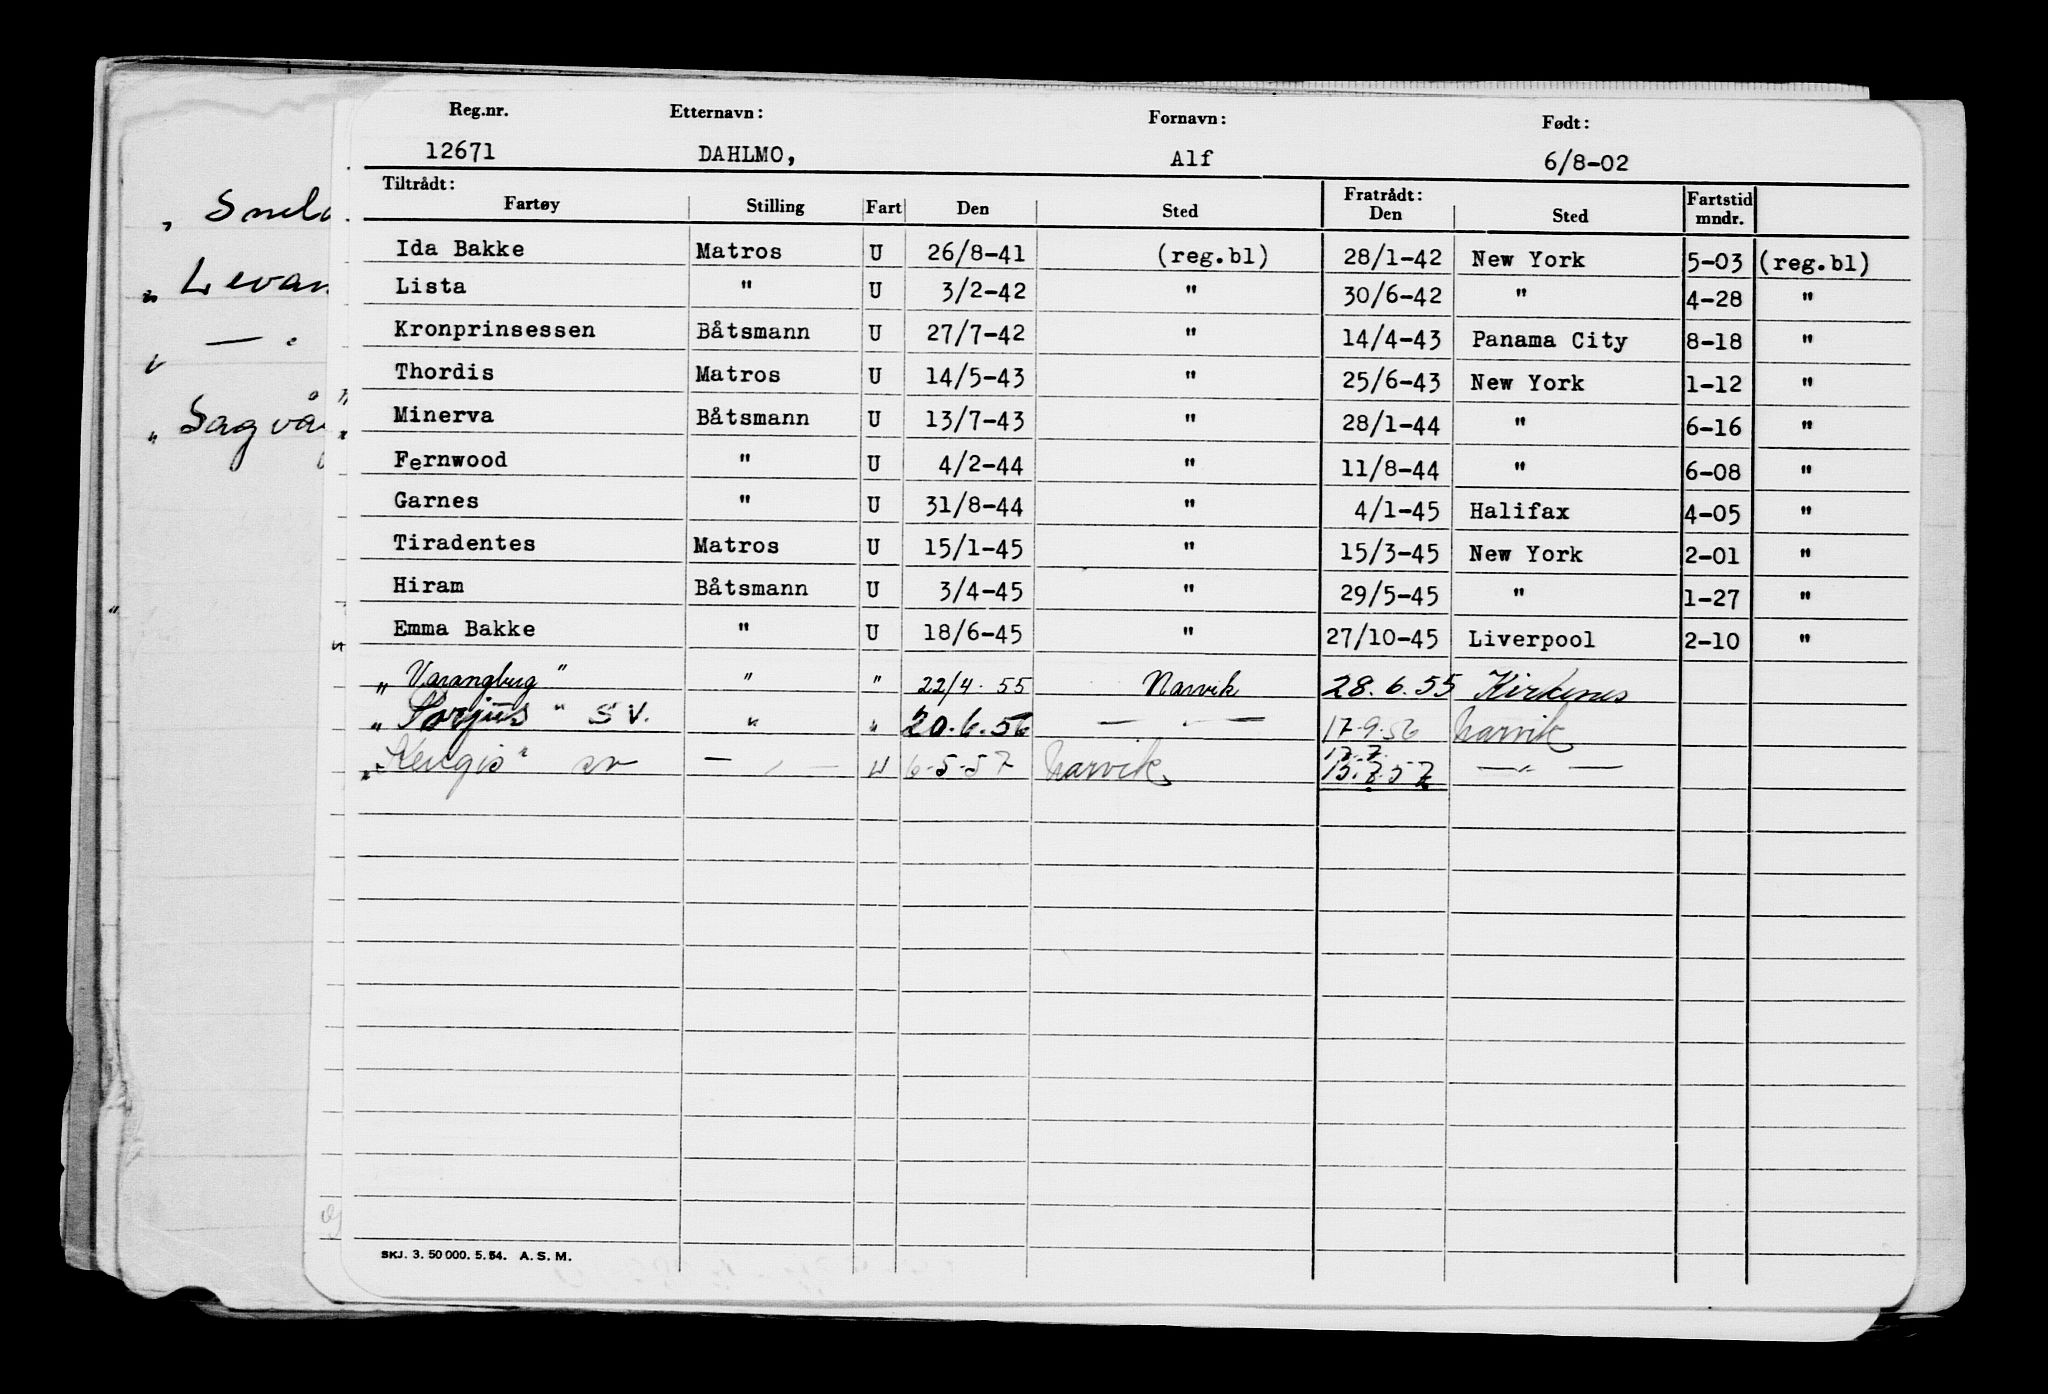 Reg.nr. Etternavn: Fornavn: Født:
12671 DAHLMO, Alf 6/8-02
Tiltrådt: Fratrådt: Fartstid
Fartøy Stilling Fart Den Sted Den Sted mndr.
Ida Bakke Matros U 26/8-41 (reg.bl) 28/1-42 New York 5-03 (reg.bl)
Lista " U 3/2-42 " 30/6-42 " 4-28 "
Kronprinsessen Båtsmann U 27/7-42 " 14/4-43 Panama City 8-18 "
Thordis Matros U 14/5-43 " 25/6-43 New York 1-12 "
Minerva Båtsmann U 13/7-43 " 28/1-44 " 6-16 "
Fernwood " U 4/2-44 " 11/8-44 " 6-08 "
Garnes " U 31/8-44 " 4/1-45 Halifax 4-05 "
Tiradentes Matros U 15/1-45 " 15/3-45 New York 2-01 "
Hiram Båtsmann U 3/4-45 " 29/5-45 " 1-27 "
Emma Bakke " U 18/6-45 " 27/10-45 Liverpool 2-10 "
"Varangbug" " " 22/4-55 Narvik 28.6.55 Kirkenes
"Torjus" S V. " " 20.6.56 — " — 17-9-56 Narvik
"Kengis" sv — " — U 6-5-57 Narvik — " —
SKJ. 3. 50 000. 5. 54. A. S. M.